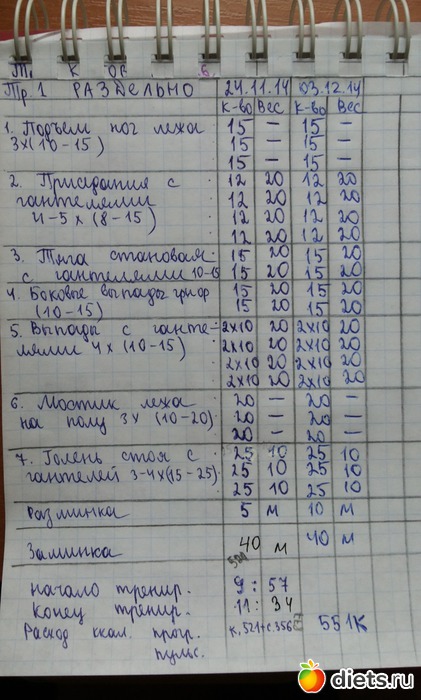 Тр. 1 РАЗДЕЛЬНО 24.11.14 03.12.14
К-во Вес К-во Вес
1. Подъем ног лежа 15 — 15 —
3х(10-15) 15 — 15 —
15 — 15 —
2. Приседания с 12 20 12 20
гантелями 12 20 12 20
4-5 х (8-15) 12 20 12 20
12 20 12 20
3. Тяга становая 15 20 15 20
с гантелями 10-15 15 20 15 20
4. Боковые выпады гриф 15 20 15 20
(10-15) 15 20 15 20
5. Выпады с ганте- 2х10 20 2х10 20
лями 4х(10-15) 2х10 20 2х10 20
2х10 20 2х10 20
2х10 20 2х10 20
6. Мостик лежа 20 — 20 —
на полу 3х (10-20) 20 — 20 —
20 — 20 —
7. Голень стоя с 25 10 25 10
гантелей 3-4х(15-25) 25 10 25 10
25 10 25 10
Разминка 5 м 10 м
Заминка 40 м 40 м
начало тренир. 9:57
конец тренир. 11:34
Расход ккал. прогр. К.521+с.356 551К
пульс.
diets.ru